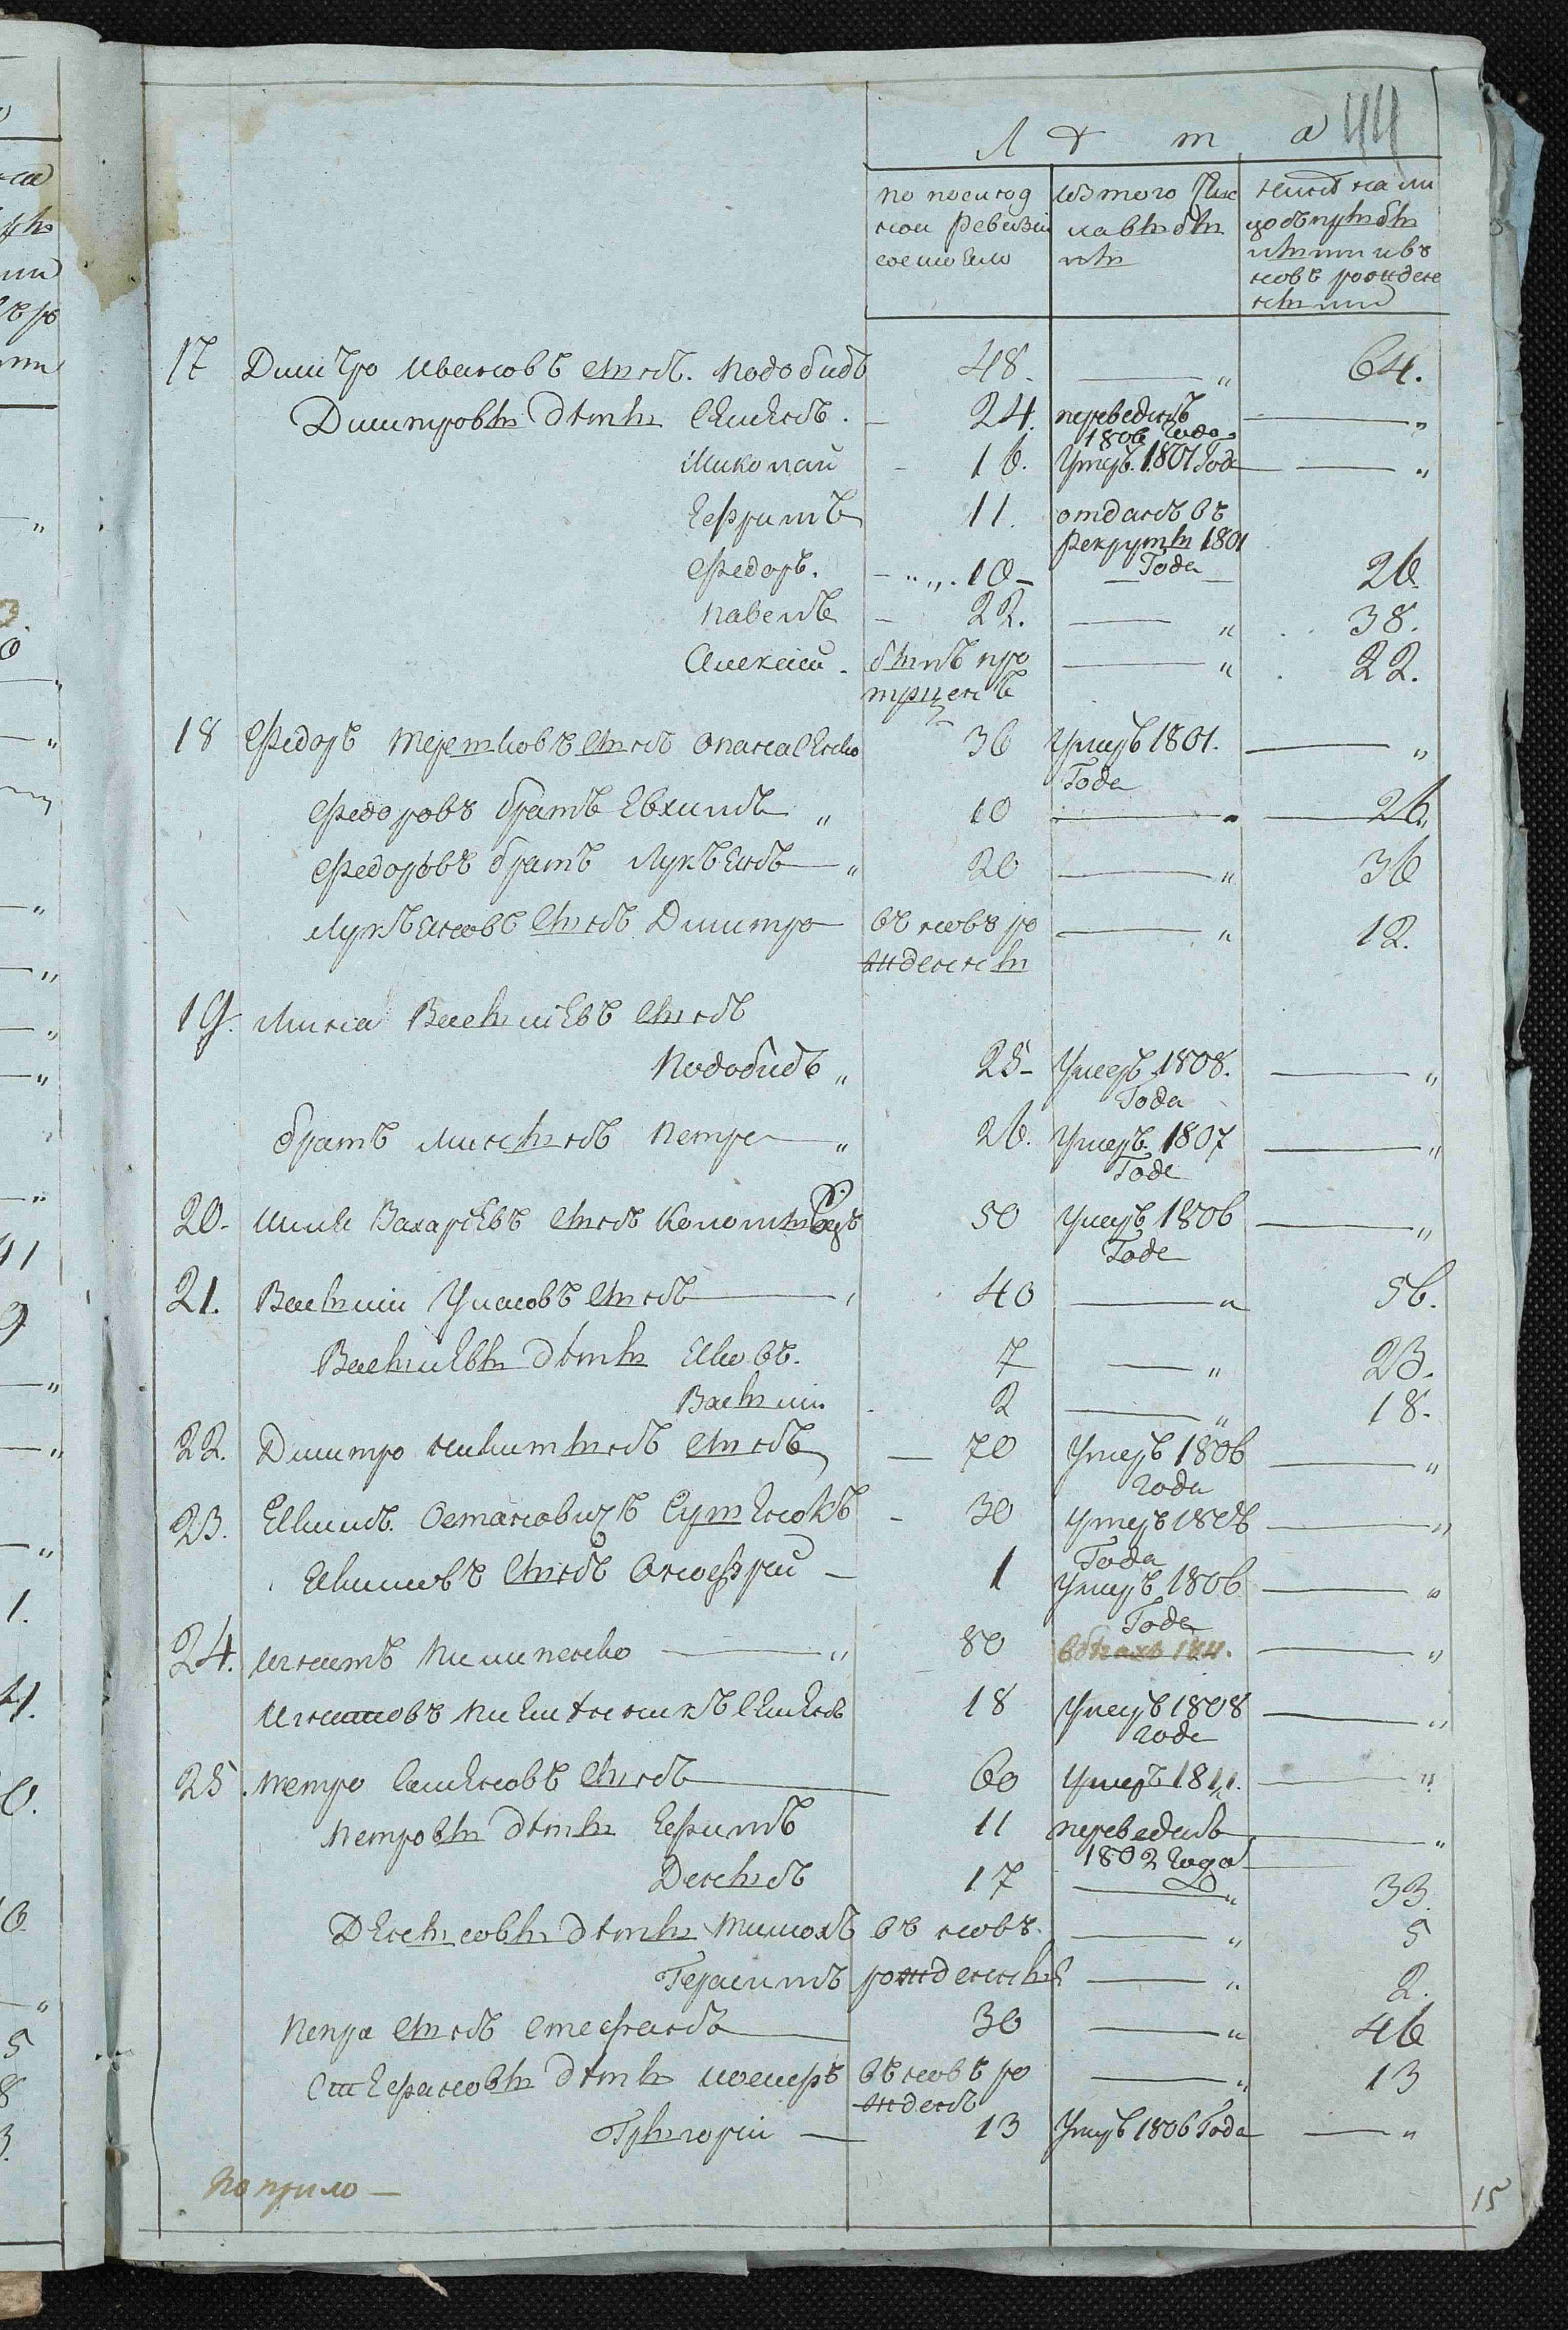 Л ѣ т а 44
по послед
ней ревизіи
состояло
изъ того числа
выбыли
ныне на ли
цо
и в
новъ рожден
ными
17 Дмитро Ивановъ сынъ. Подобидъ 48. — 64.
Дмитровы дѣти Семенъ. — 24. переведенъ —
1806 года
Миколай — 16. умеръ. 1801 Года — "
Ефримъ 11. отданъ въ
рекруты 1801
Федоръ. — 10 — Года 26
Павелъ — 22. — " 38.
Алексій. былъ про — " 22.
18 Федоръ сынъ Опанасенко 36 умеръ 1801. — "
Года
Федоровъ братъ Евхимъ " 10 — 26.
Федоровъ братъ Лукъянъ — " 20 — " 36
Лукъяновъ сынъ Дмитро въ новъ ро — " 12.
жденны
19. Мина Васылієвъ сынъ
Подобидъ " 25 — умеръ 1808. — "
Года
братъ Минынъ Петро — " 26. умеръ. 1807 — "
Года
20. Захарієвъ сынъ 50 умеръ 1806 — "
Года
21. Васылій Уласовъ сынъ — 40 — " 56.
Васылієвы дѣти Яковъ. 7 — " 23.
Васылій. 2 — " 18.
22. Дмитро Никитынъ сынъ — 70 умеръ 1806 — "
года
23. Екимъ Остановичъ — 30 умеръ 1806 — "
Года
Екимовъ сынъ Оноефрій — 1 умеръ 1806 — "
Года
24. Игнатъ — " 80 — "
Игнатовъ Семенъ 18 умеръ 1808 — "
года
25. Петро Семеновъ сынъ — 60 умеръ 1811. — "
Петровы дѣти Ефимъ 11 переведенъ — "
1802 года
Денысъ 17 — " 33.
Денысовы дѣти Тимохъ въ новъ. — " 5
Герасимъ рожденны — " 2.
Петра сынъ Стефанъ — 30 — " 46
Стефановы дѣти въ новъ ро — " 13
жденъ
Грыгорій — 13 умеръ 1806 Года — "
15